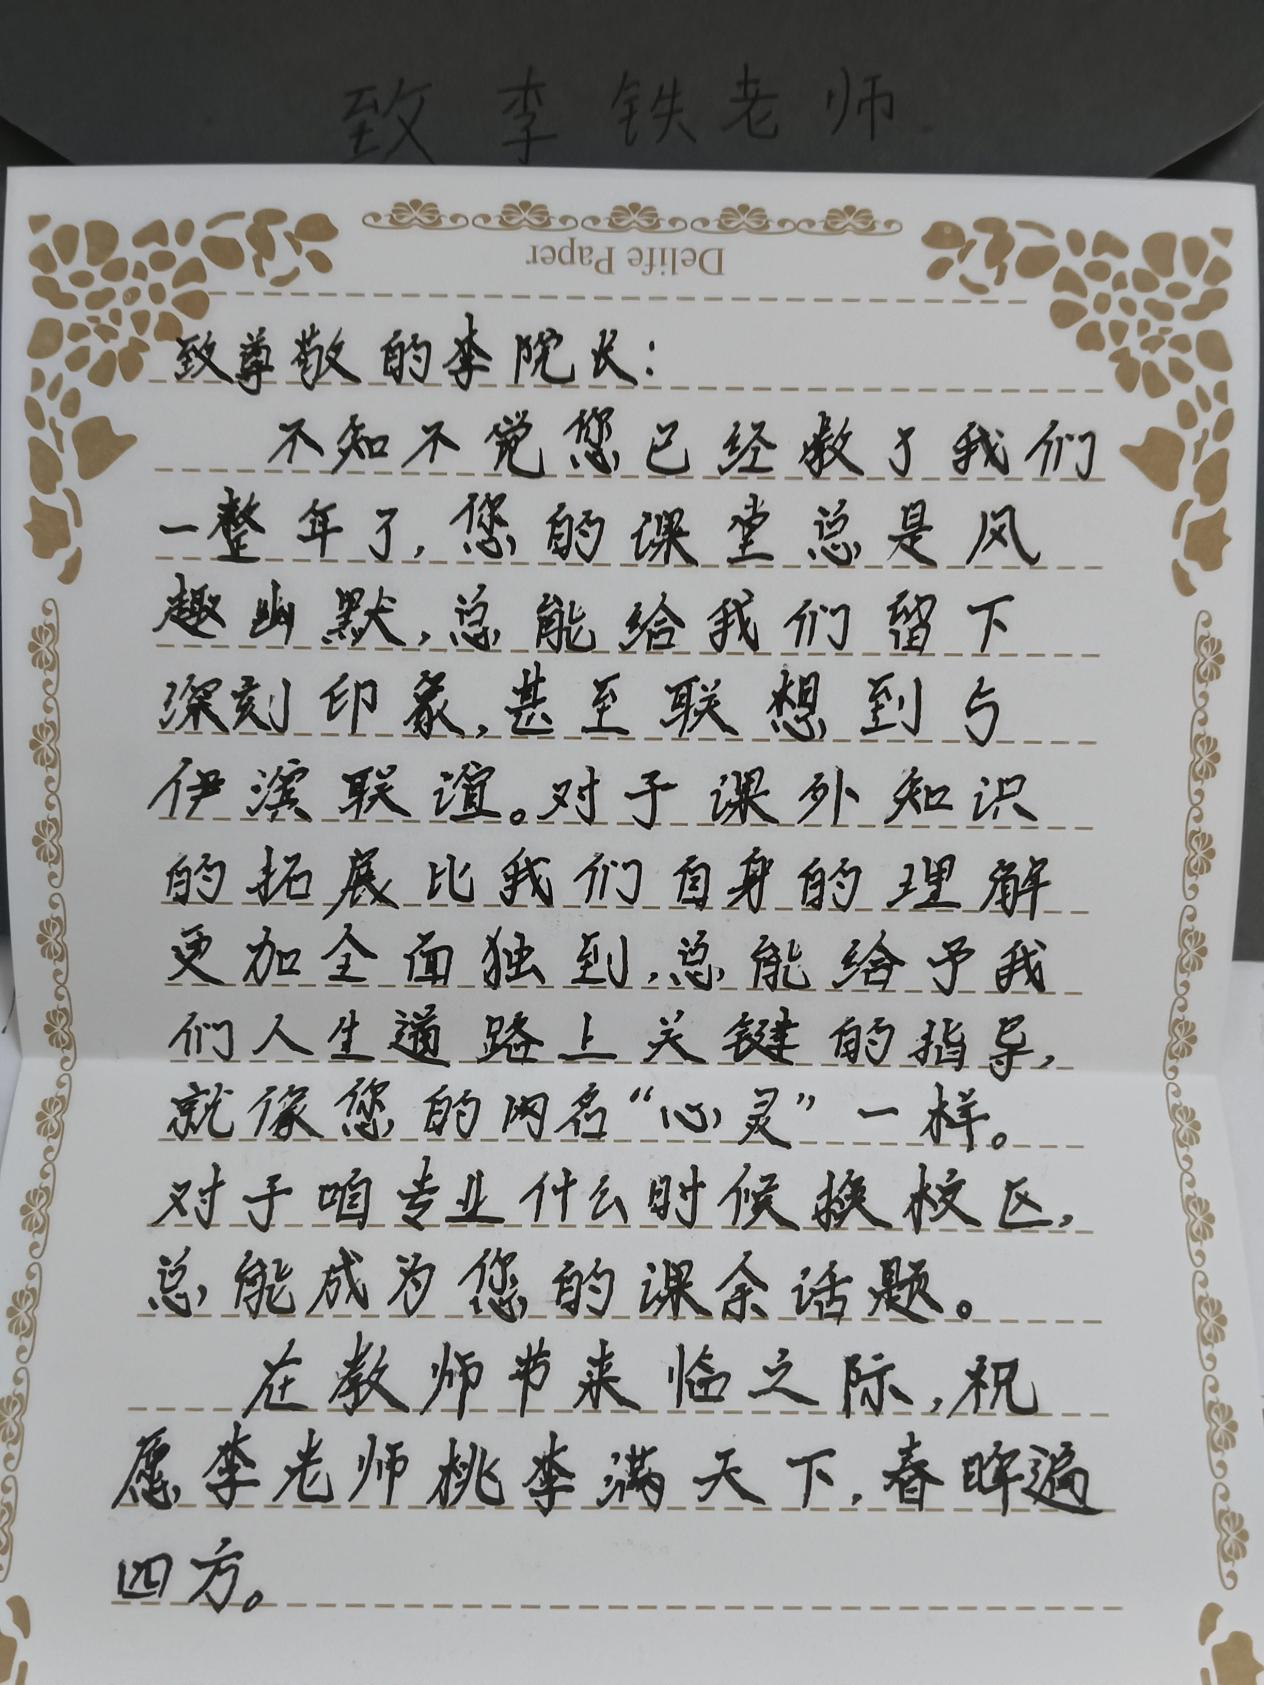 致李铁老师.
Delife Paper
致尊敬的李院长：
不知不觉您已经教了我们
一整年了，您的课堂总是风
趣幽默，总能给我们留下
深刻印象，甚至联想到与
伊滨联谊。对于课外知识
的拓展比我们自身的理解
更加全面独到，总能给予我
们人生道路上关键的指导，
就像您的网名“心灵”一样。
对于咱专业什么时候换校区，
总能成为您的课余话题。
在教师节来临之际，祝
愿李老师桃李满天下，春晖遍
四方。